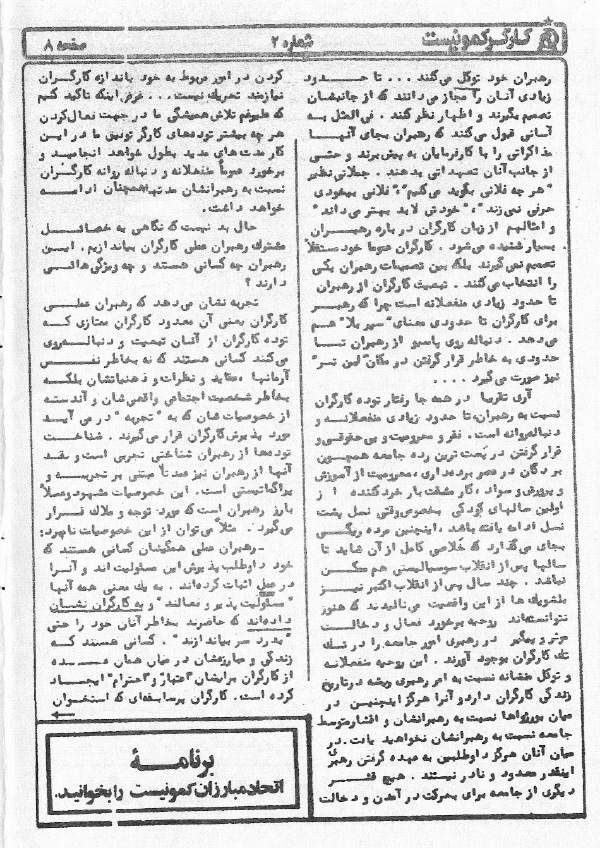 کارگر کمونیست
شماره ۲
صفحه ۸
رهبران خود توکل می‌کنند ... تا حدود
زیادی آنان را مجاز می‌دانند که از جانبشان
تصمیم بگیرند و اظهار نظر کنند. فی‌المثل به
آسانی قبول می‌کنند که رهبران بجای آنها
مذاکراتی را با کارفرمایان به پیش برند و حتی
از جانب آنان تعهداتی بدهند. جملاتی نظیر
"هر چه فلانی بگوید می‌کنیم"، "فلانی بیخودی
حرفی نمی‌زند"، "خودش لابد بهتر می‌داند"
و امثالهم از زبان کارگران در باره رهبران
بسیار شنیده می‌شود. کارگران عموما خود مستقلا
تصمیم نمی‌گیرند بلکه بین تصمیمات رهبران یکی
را انتخاب می‌کنند. تبعیت کارگران از رهبران
تا حدود زیادی منفعلانه است چرا که رهبر
برای کارگران تا حدودی معنای "سپر بلا" هم
می‌دهد. دنباله روی پاسیو از رهبران تا
حدودی به خاطر قرار گرفتن در مکان "این سر"
نیز صورت می‌گیرد ....
آری تقریبا در همه جا رفتار توده کارگران
نسبت به رهبران، تا حدود زیادی منفعلانه و
دنباله‌روانه است. فقر و محرومیت و بی‌حقوقی و
قرار گرفتن در پست ترین رده جامعه همچون
بردگان در عصر برده‌داری، محرومیت از آموزش
و پرورش و سواد، کار مشقت بار خردکننده از
اولین سالهای کودکی بخصوص وقتی نسل پشت
نسل ادامه یافته باشد، اینچنین مرده ریگی
بجای می‌گذارد که خلاصی کامل از آن شاید تا
سالها پس از انقلاب سوسیالیستی هم ممکن
نباشد. چند سال پس از انقلاب اکتبر نیز
بلشویک‌ها از این واقعیت می‌نالیدند که هنوز
نتوانسته‌اند روحیه برخورد فعال و دخالت
موثر و پیگیر در رهبری امور جامعه را در تک
تک کارگران بوجود آورند. این روحیه منفعلانه
و توکل منشانه نسبت به امر رهبری ریشه در تاریخ
زندگی کارگران دارد و آنرا هرگز اینچنین در
میان بورژواها نسبت به رهبرانشان و اقشار متوسط
جامعه نسبت به رهبرانشان نخواهید یافت. در
میان آنان هرگز داوطلبین به عهده گرفتن رهبری
اینقدر محدود و نادر نیستند. هیچ قشر
دیگری از جامعه برای بحرکت در آمدن و دخالت
کردن در امور مربوط به خود باندازه کارگران
نیازمند تحریک نیست ... غرض اینکه تاکید کنیم
که علیرغم تلاش همیشگی ما در جهت فعال کردن
هر چه بیشتر توده‌های کارگر توفیق ما در این
کار مدت‌های مدید بطول خواهد انجامید و
برخورد عموماً منفعلانه و دنباله روانه کارگران
نسبت به رهبرانشان مدتها همچنان ادامه
خواهد داشت.
حال بد نیست که نگاهی به خصائل
مشترک رهبران عملی کارگران بیاندازیم، این
رهبران چه کسانی هستند و چه ویژگی‌هائی
دارند؟
تجربه نشان می‌دهد که رهبران عملی
کارگران یعنی آن معدود کارگران ممتازی که
توده کارگران از آنان تبعیت و دنباله‌روی
می‌کنند کسانی هستند که نه بخاطر نفس
آرمانها، عقاید و نظرات و ذهنیاتشان بلکه
بخاطر شخصیت اجتماعی واقعی‌شان و آندسته
از خصوصیات شان که به "تجربه" در می‌آیید
مورد پذیرش کارگران قرار می‌گیرند. شناخت
توده‌ها از رهبران شناختی تجربی است و نقد
آنها از رهبران نیز عمدتاً مبتنی بر تجربه و
پراگماتیستی است. این خصوصیات مشهود و عملاً
بارز رهبران است که مورد توجه و ملاک قرار
می‌گیرد. مثلاً می‌توان از این خصوصیات نام برد:
ـ رهبران عملی همگیشان کسانی هستند که
خود داوطلب پذیرش این مسئولیت اند و آنرا
در عمل اثبات کرده‌اند. به یک معنی همه آنها
"مسئولیت پذیر و فعالند" و به کارگران نشان
داده‌اند که حاضرند بخاطر آنان خود را حتی
"بدرد سر بیاندازند". کسانی هستند که
زندگی و مبارزه‌شان در میان همان عده
از کارگران برایشان "اعتبار و احترام" ایجاد
کرده است. کارگران پرسابقه‌ای که استخوان
برنامهٔ
اتحاد مبارزان کمونیست را بخوانید.